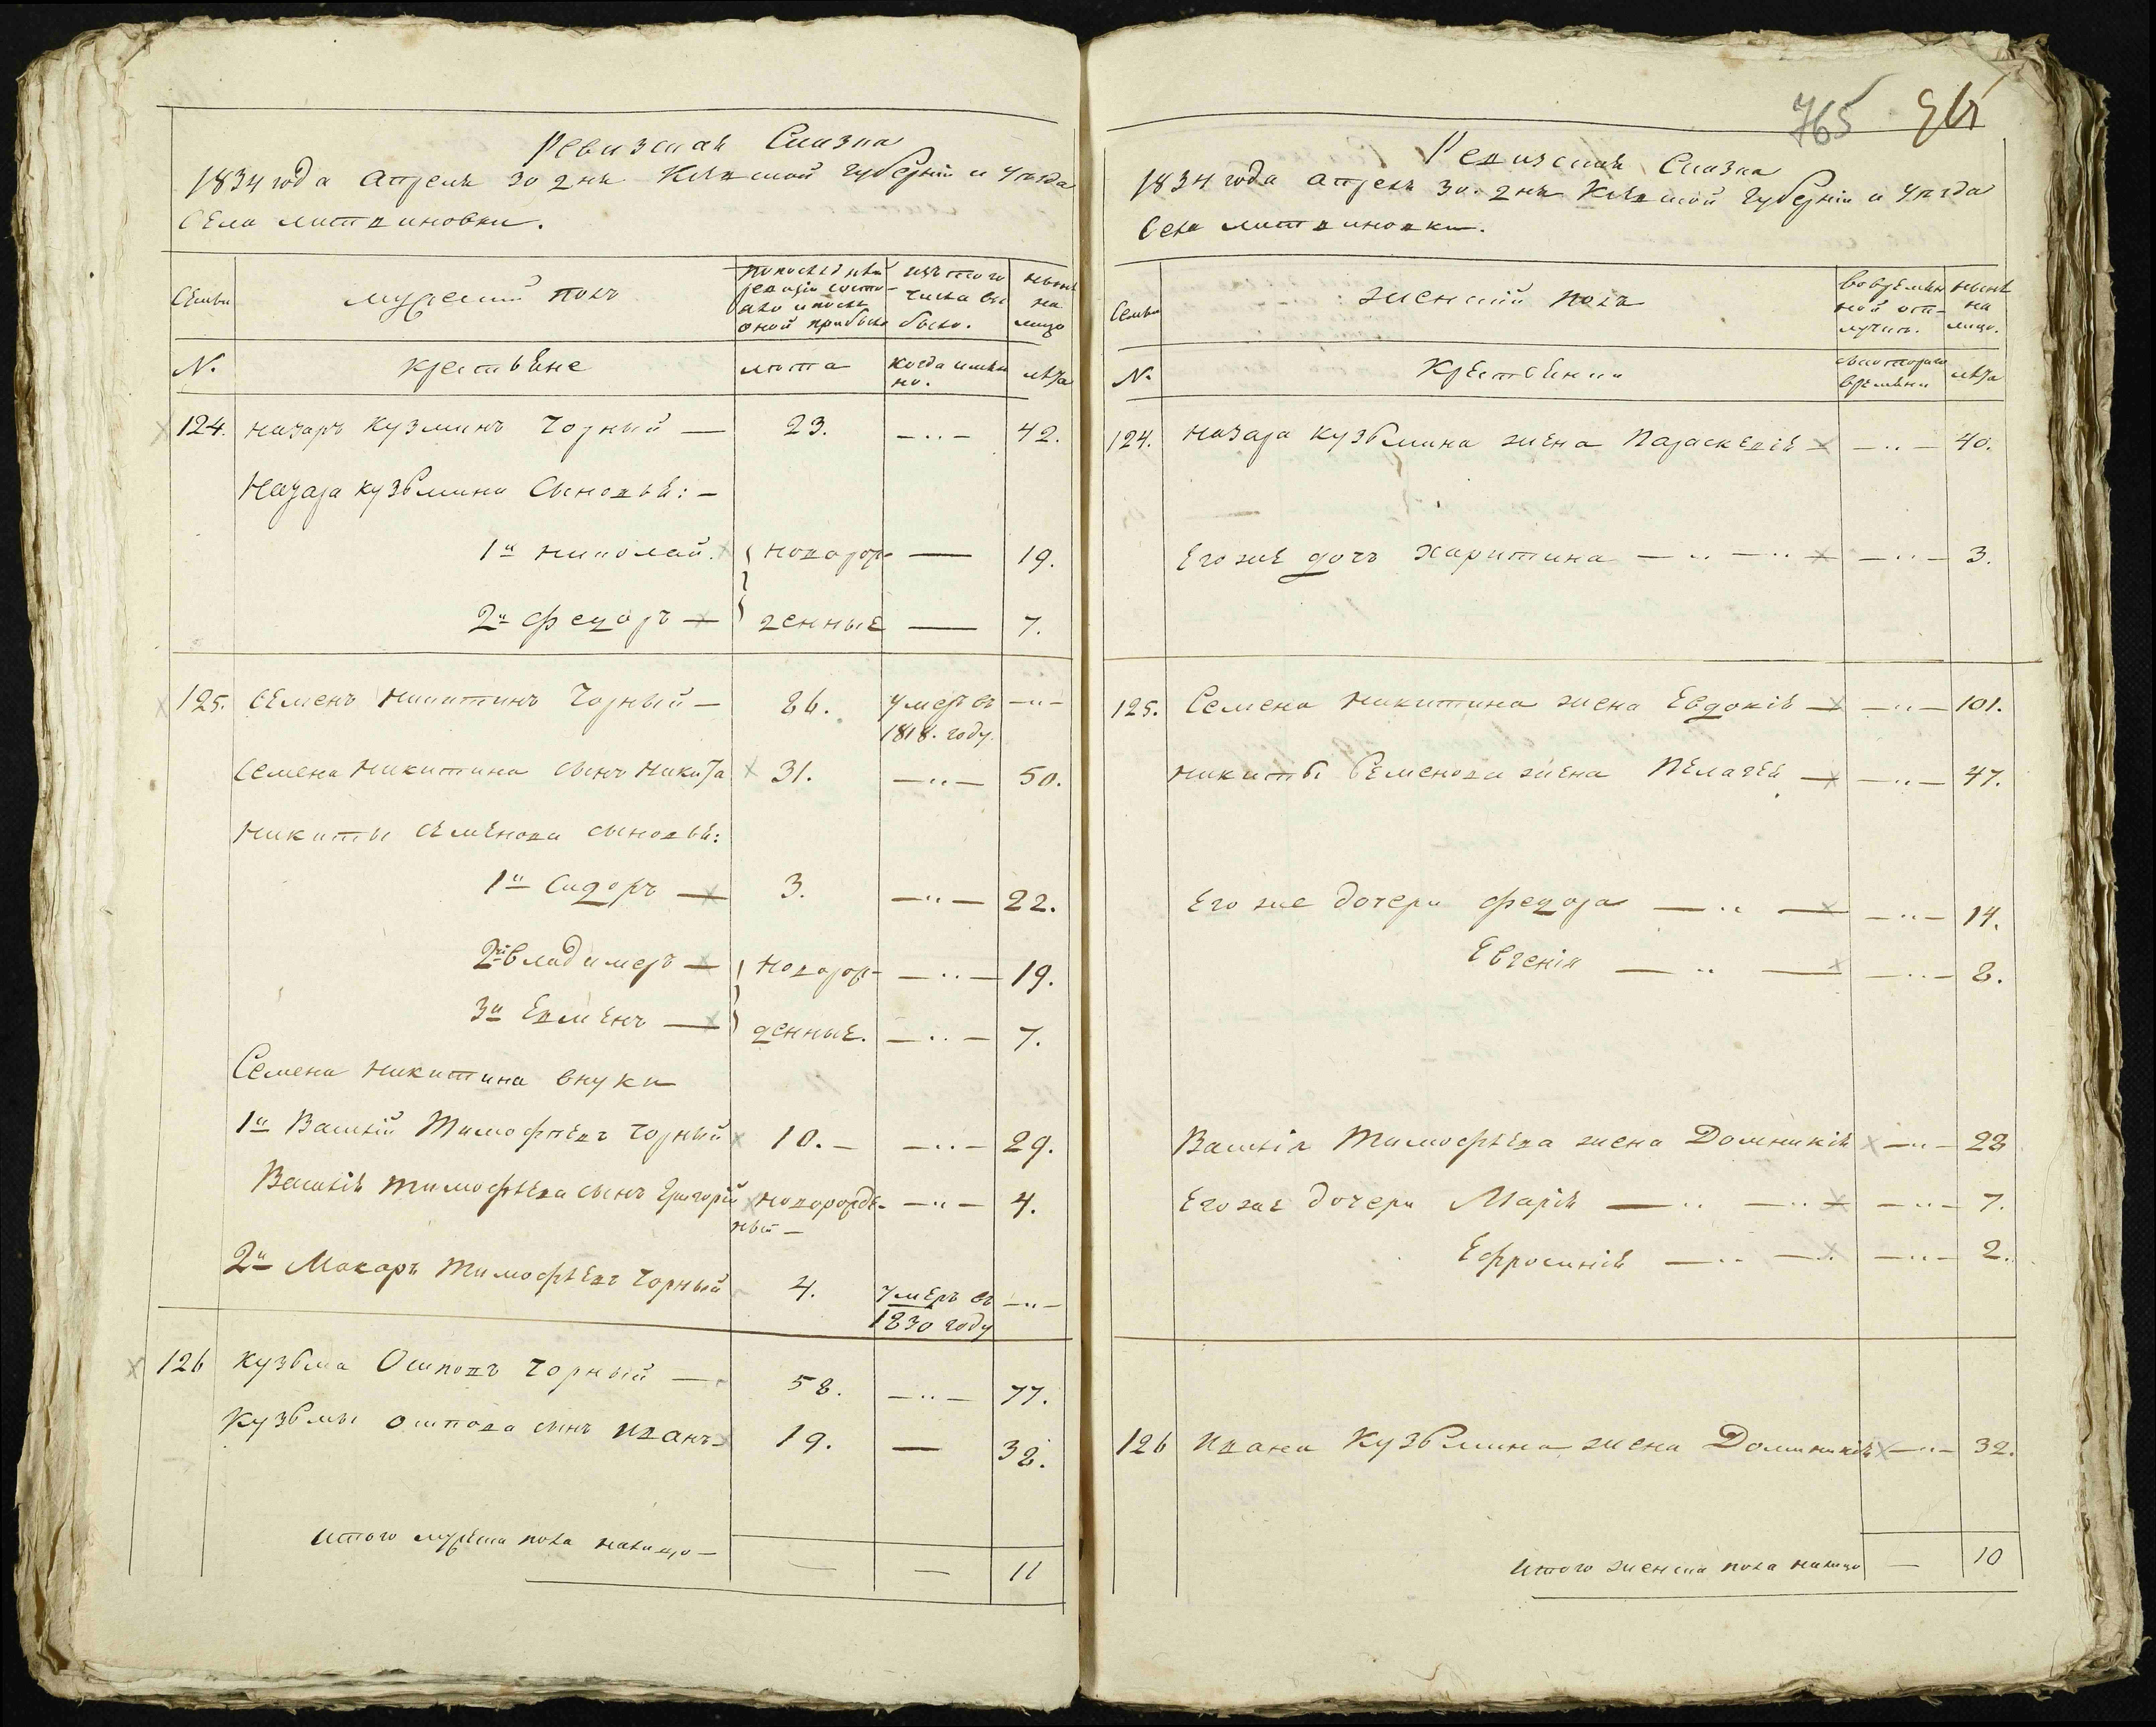 Ревизская Сказка
1834 года Апреля 30 дня Кіевской Губерніи и Уѣзда
Села Литвиновки.
Семьи
Мужеский полъ
По последней
ревизіи состо-
яло и после
оной прибыло
Изъ того
числа вы
было.
Нынѣ
на
лицо
№.
Крестьяне
Лѣта
Когда имен
но.
Лѣта
124. Назаръ Кузминъ Чорный — 23. —„— 42.
Назара Кузьмина Сыновья: —
1й Николай. новорож- — 19.
2й Федоръ — денные — 7.
125. Семенъ Никитинъ Чорный — 86. Умеръ въ —„—
1818. году.
Семена Никитина сынъ Никита 31. —„— 50.
Никиты Семенова сыновья:
1й Сидоръ — 3. —„— 22.
2й Владимеръ — новорож- —„— 19.
3й Евменъ — денные. —„— 7.
Семена Никитина внуки
1й Василій Тимофѣевъ Чорный 10. — —„— 29.
Василія Тимофѣева сынъ Григорій новорожде- —„— 4.
ный —
2й Макаръ Тимофѣевъ Чорный 4. Умеръ въ —„—
1830 году
126 Кузьма Осиповъ Чорный — 58. —„— 77.
Кузьмы Осипова сынъ Иванъ 19. — 38.
Итого мужеска пола налицо — — — 11
765 96
Ревизская Сказка
1834 года Апреля 30. дня Кіевской Губерніи и Уѣзда
Села Литвиновки.
Семьи
Женскій полъ
Во времен
ной от-
лучки.
Нынѣ
на
лицо.
№
Крестьянки
Съ котораго
времени
Лѣта
124. Назара Кузьмина жена Параскевія —„— 40.
Его же дочъ Харитина —„—„— —„— 3.
125. Семена Никитина жена Евдокія —„— 101.
Никиты Семенова жена Пелагея —„— 47.
Его же дочери Федора —„— —„— 14.
Евгенія —„— —„— 8.
Василія Тимофѣева жена Домникія —„— 28
Его же дочери Марія —„—„— —„— 7.
Ефросинія —„—„ —„— 2.
126 Ивана Кузьмина жена Домникія —„— 32.
Итого женска пола налицо — 10